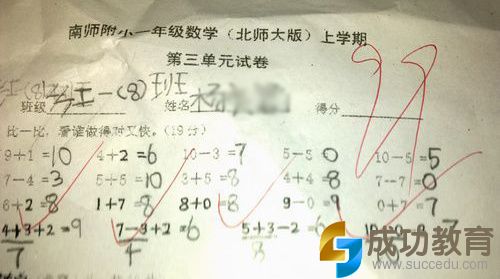 南师附小一年级数学（北师大版）上学期
第三单元试卷
班级 一(8)班 姓名 杨 得分 99
比一比，看谁做得对又快。(19分)
9+1=10 4+2=6 10-3=7 5-5=0 10-5=5
7-4=3 5+5=10 3+5=8 4+4=8 7-7=0
6+2=8 1+7=8 8+0=8 9-0=9 0+7=7
4+3+2=9 7-3+2=6 5+3-2=6 7
7 4 8
成功教育
www.succedu.com